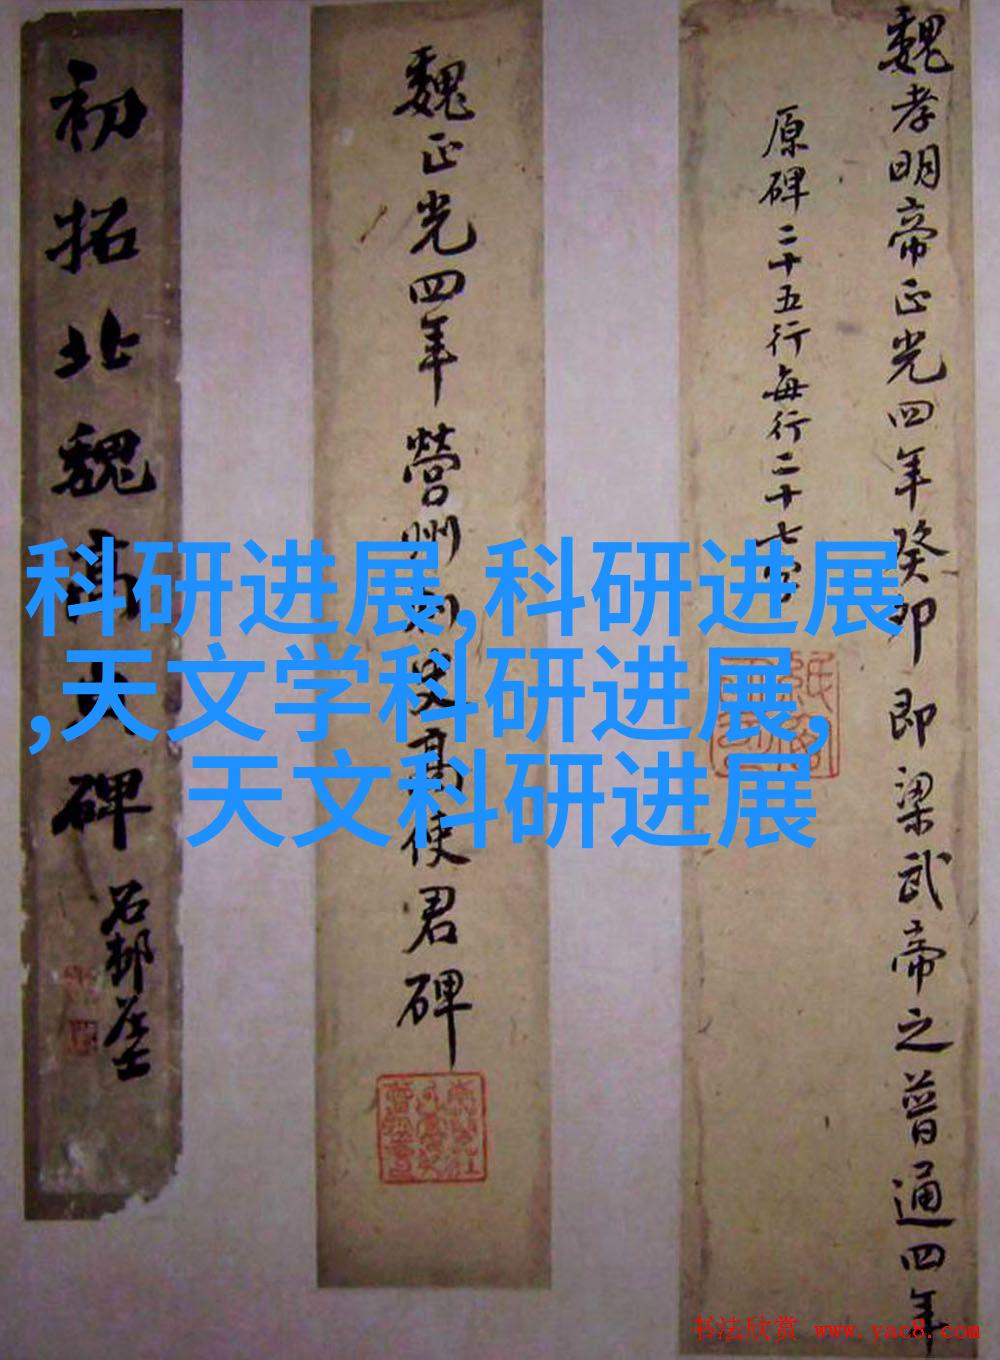 魏孝明帝正光四年癸卯即梁武帝之普通四年
原碑二十五行每行二十七字
魏正光四年營州刺史高使君碑
初拓北魏高碑
石邨居士
科研进展,科研进展
,天文学科研进展,
天文科研进展
书法欣赏 www.yac8.com